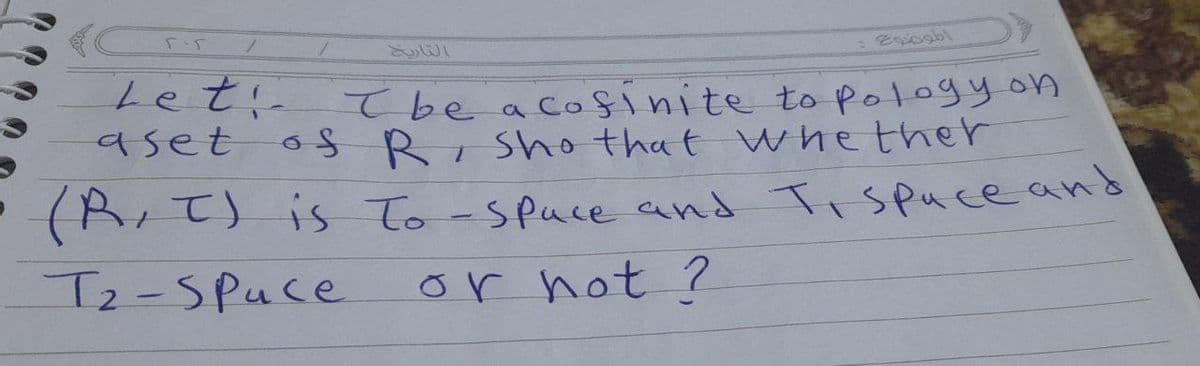 الموضوع :
التاريخ / / ٢٠٢
Let:- τ be a cofinite topology on
aset of R, sho that whether
(R, τ) is To - space and T1 space and
T2 - space or not ?